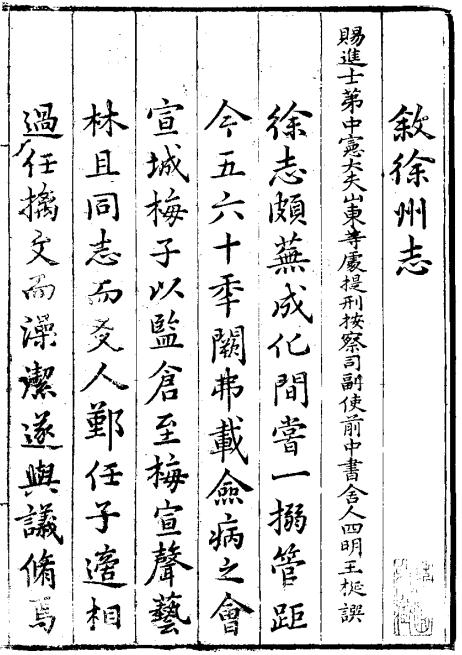 敘徐州志
賜進士第中憲大夫山東等處提刑按察司副使前中書舍人四明王梴譔
徐志頗蕪成化間嘗一搦管距
今五六十秊闕弗載僉病之會
宣城梅子以監倉至梅宣聲藝
林且同志而友人鄞任子適相
過任摛文而澡潔遂與議脩焉